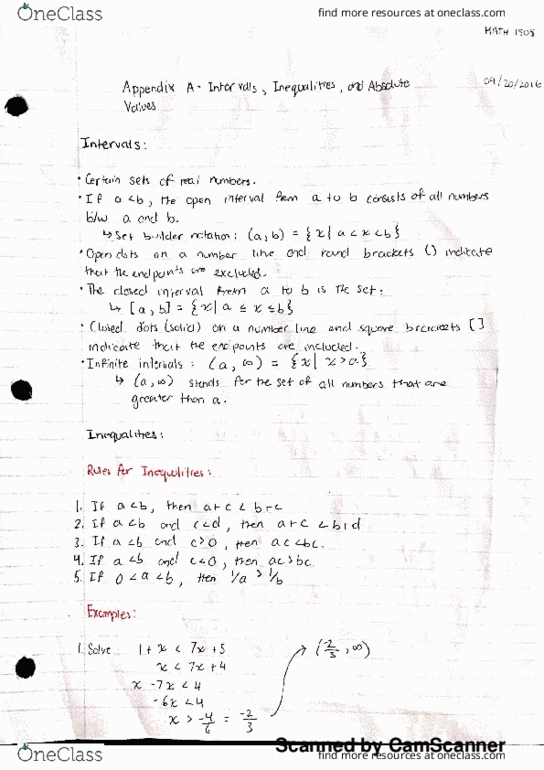 OneClass find more resources at oneclass.com
MATH 1505
09/20/2016
Appendix A - Intervals, Inequalities, and Absolute
Values
Intervals:
• Certain sets of real numbers.
• If a < b, the open interval from a to b consists of all numbers
b/w a and b.
↳ Set builder notation: (a, b) = {x | a < x < b}
• Open dots on a number line and round brackets () indicate
that the endpoints are excluded.
• The closed interval from a to b is the set:
↳ [a, b] = {x | a ≤ x ≤ b}
• Closed dots (solid) on a number line and square brackets []
indicate that the endpoints are included.
• Infinite intervals: (a, ∞) = {x | x > a}
↳ (a, ∞) stands for the set of all numbers that are
greater than a.
Inequalities:
Rules for Inequalities:
1. If a < b, then a + c < b + c
2. If a < b and c < d, then a + c < b + d
3. If a < b and c > 0, then ac < bc.
4. If a < b and c < 0, then ac > bc
5. If 0 < a < b, then 1/a > 1/b
Examples:
1. Solve 1 + x < 7x + 5 (-2/3, ∞)
x < 7x + 4
x - 7x < 4
-6x < 4
x > -4/6 = -2/3
Scanned by CamScanner
OneClass find more resources at oneclass.com